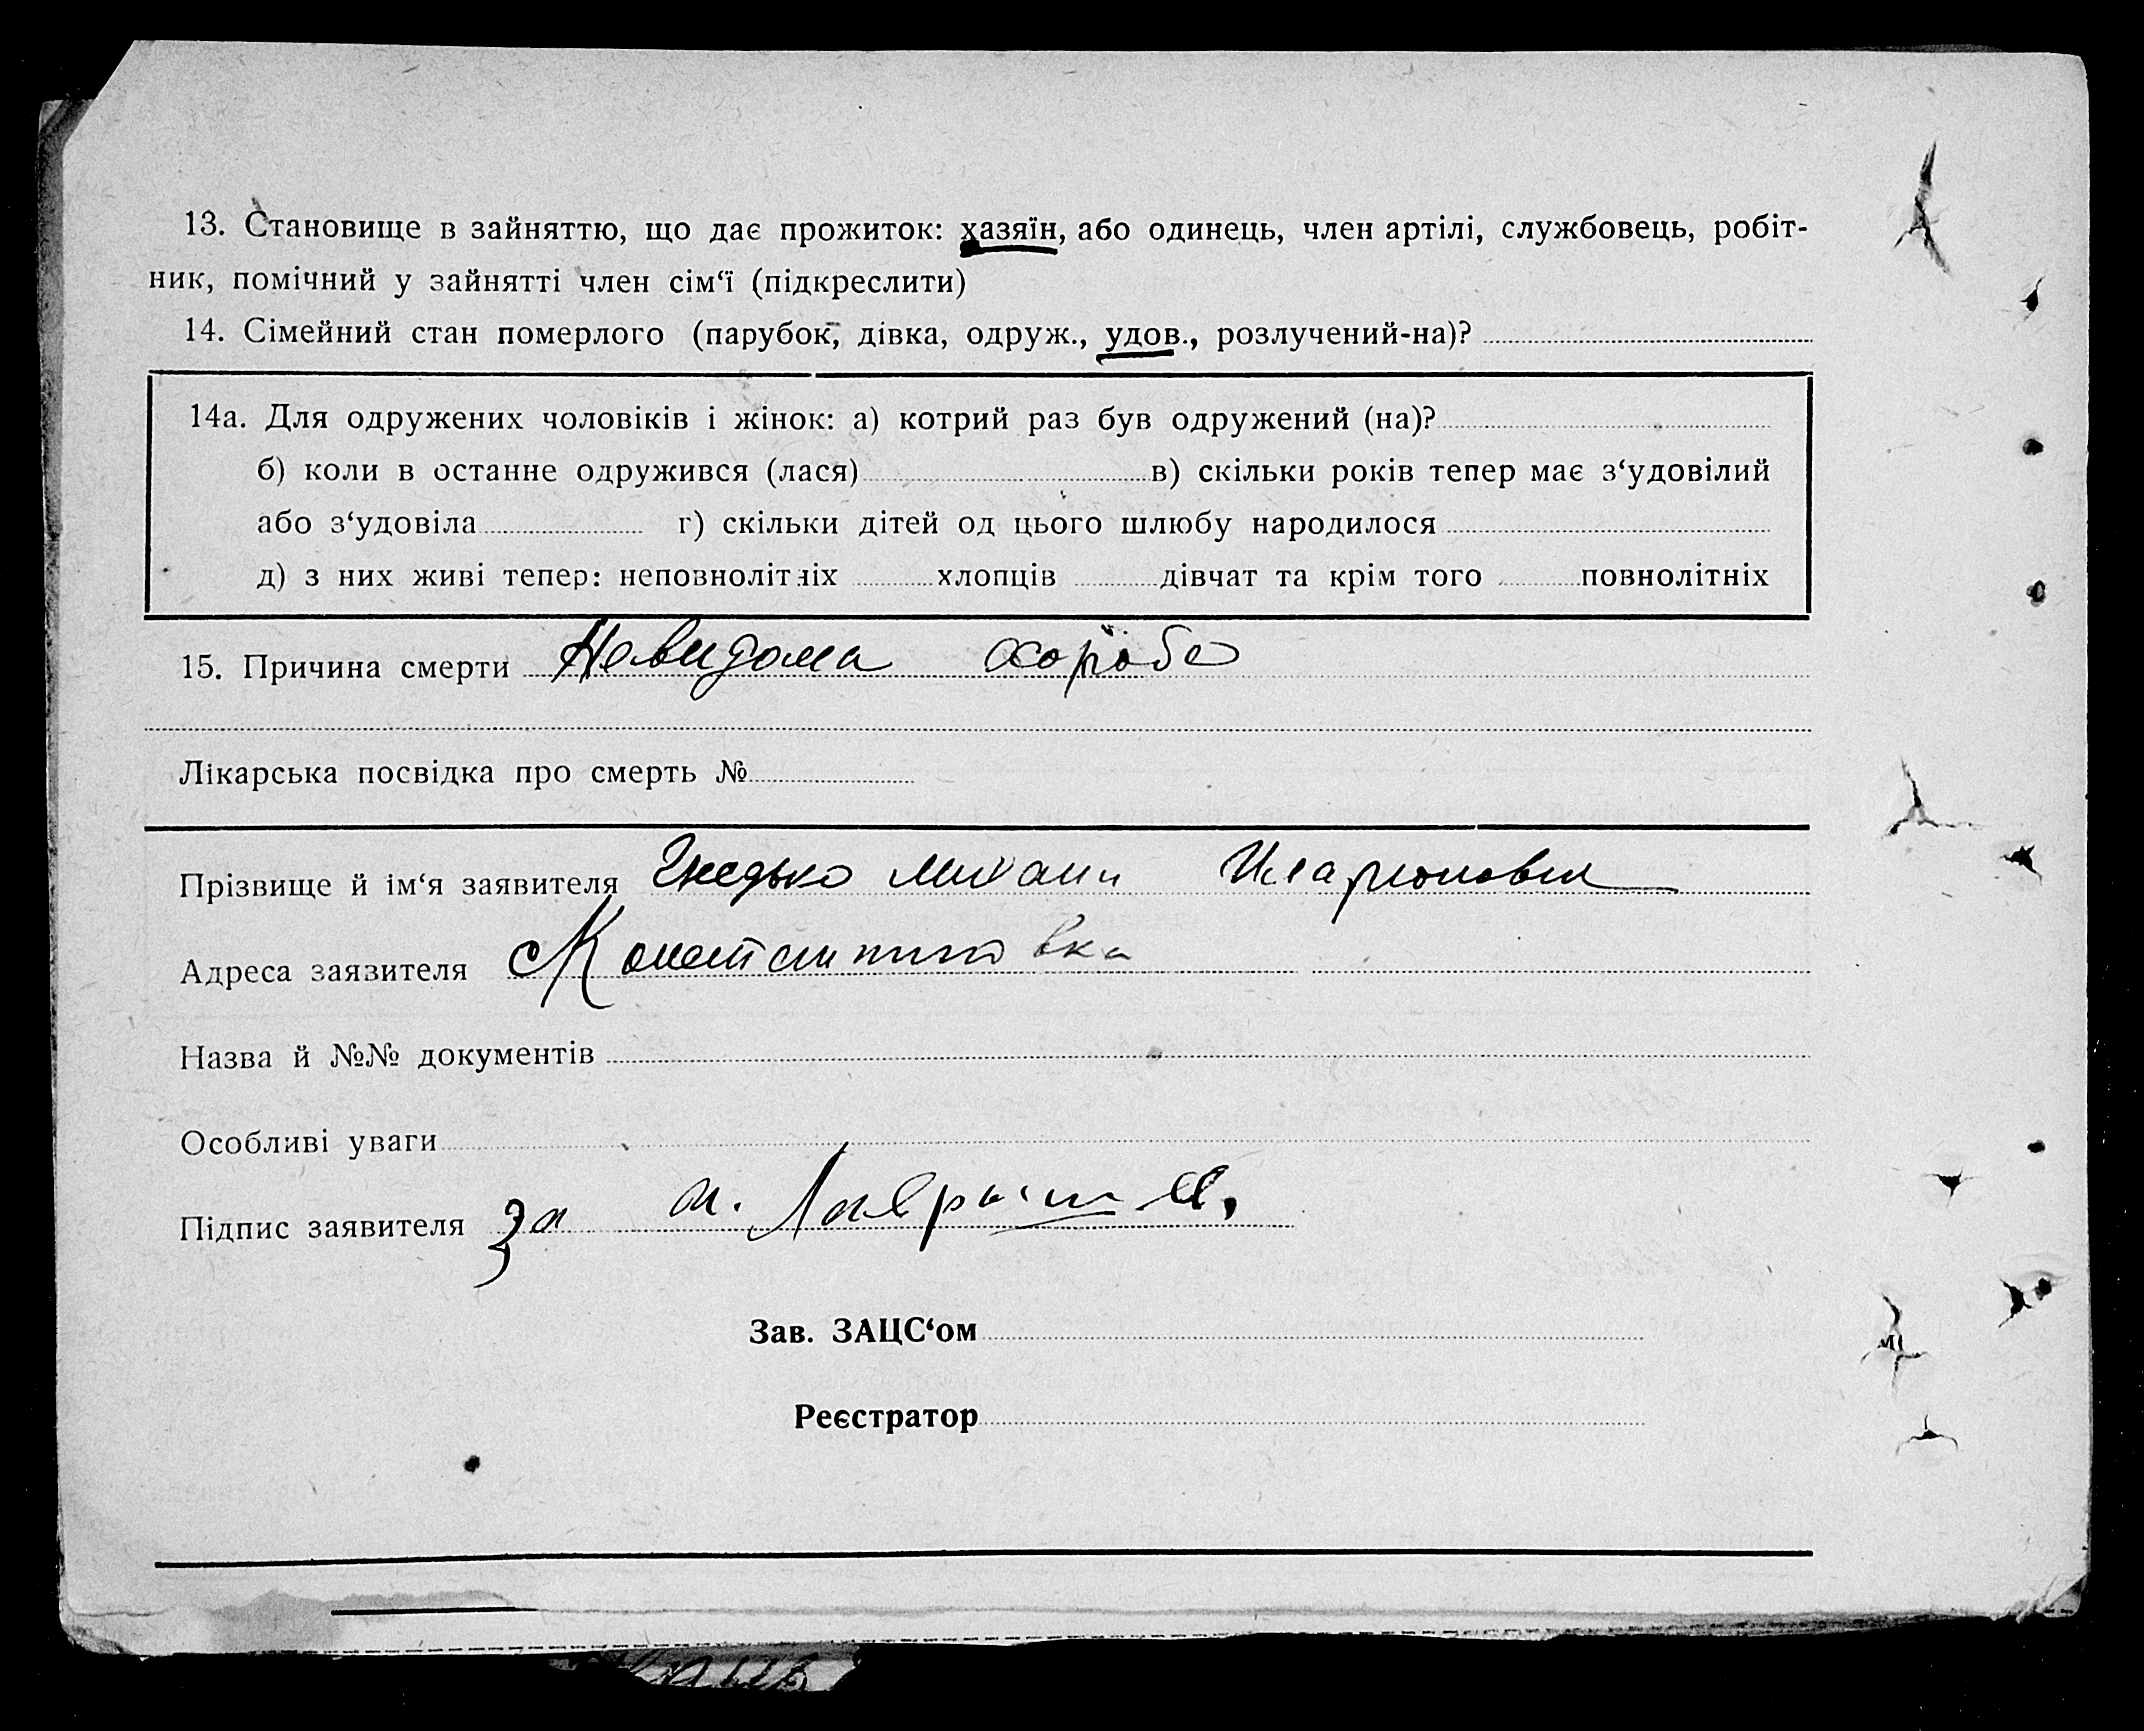 13. Становище в зайняттю, що дає прожиток: хазяїн, або одинець, член артілі, службовець, робіт-
ник, помічний у зайнятті член сім‘ї (підкреслити)
14. Сімейний стан померлого (парубок, дівка, одруж., удов., розлучений-на)?
14а. Для одружених чоловіків і жінок: а) котрий раз був одружений (на)?
б) коли в останнє одружився (лася) в) скільки років тепер має з‘удовілий
або з‘удовіла г) скільки дітей од цього шлюбу народилося
д) з них живі тепер: неповнолітніх хлопців дівчат та крім того повнолітніх
15. Причина смерти Невидома хороба
Лікарська посвідка про смерть №
Прізвище й ім‘я заявителя Гнедько Михаил Иларионович
Адреса заявителя с Константиновка
Назва й №№ документів
Особливі уваги
Підпис заявителя За
Зав. ЗАЦС‘ом
Реєстратор